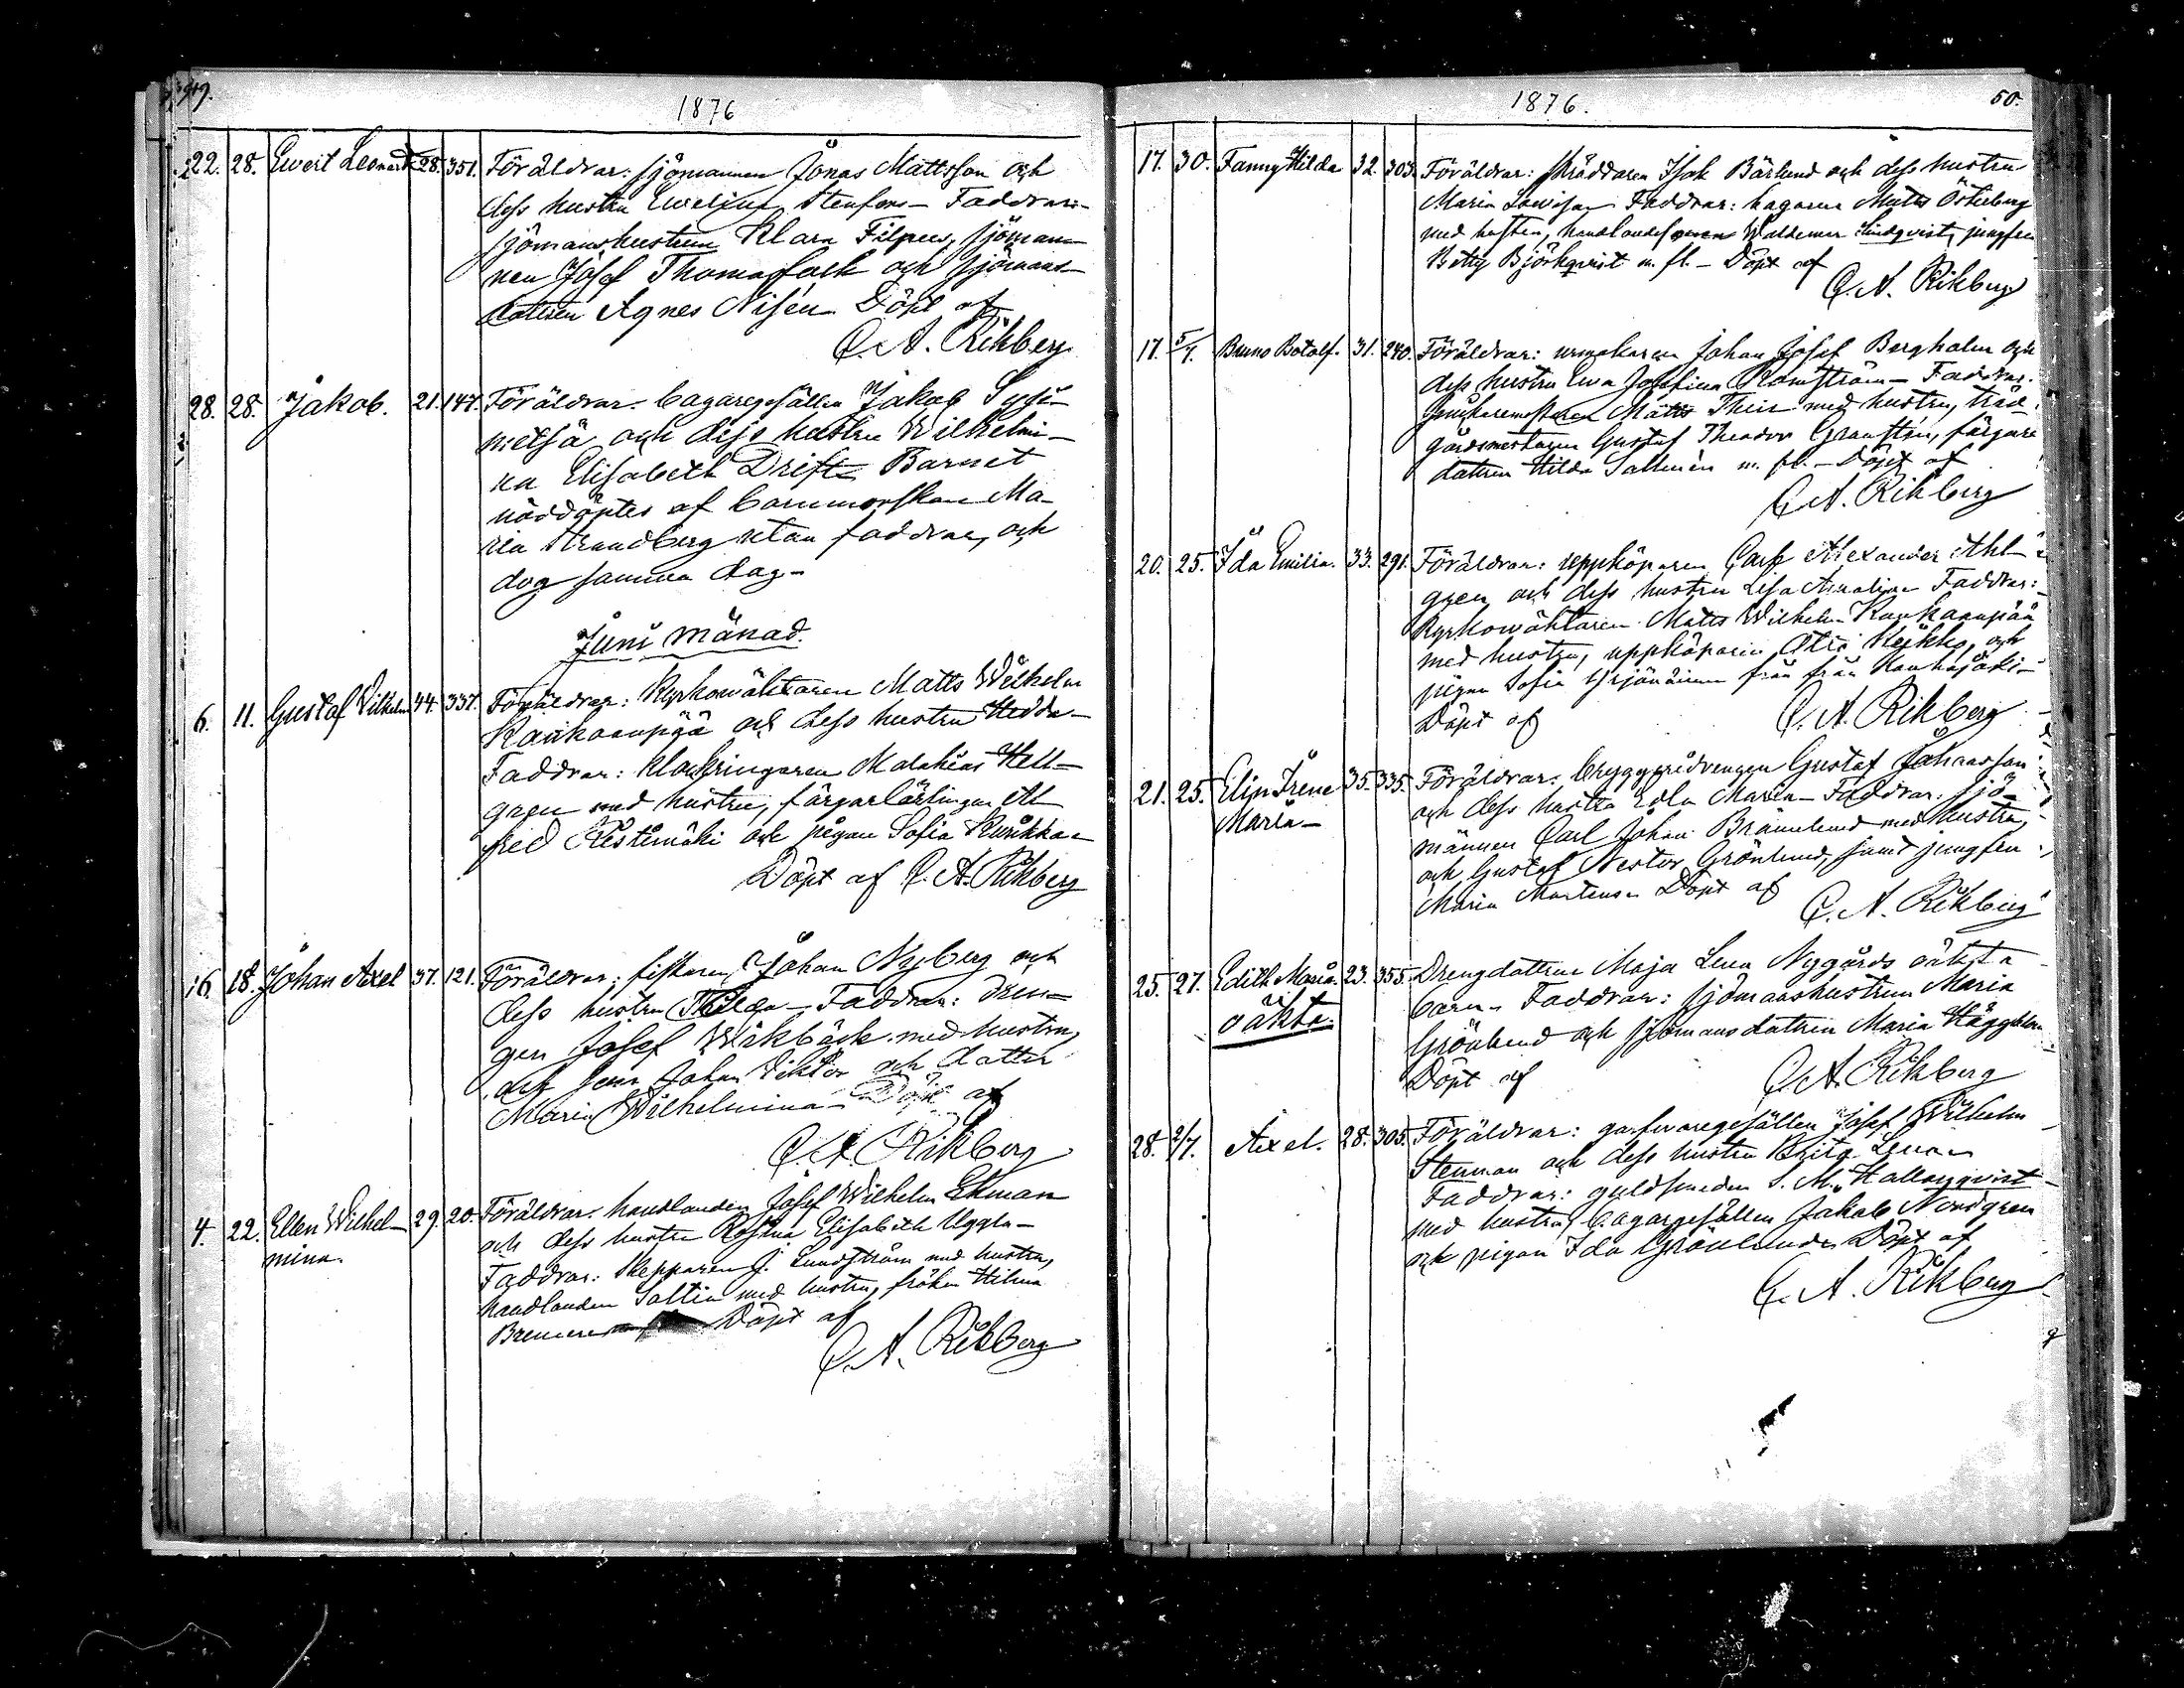 49.
1876
22. 28. Ewert Leonard 28. 351. Föräldrar: sjömannen Jonas Mattsson och
dess hustru Ewelina Stenfors – Faddrar:
sjömanshustrun Klara Filpus, sjöman-
nen Josef Thomasfolk och sjömans-
dottren Agnes Nisén – Döpt af
C. A. Rikberg
28. 28. Jakob. 21. 147. Föräldrar: bagaregesällen Jakob
metsä och dess hustru Wilhelmi-
na Elisabeth Drifts – Barnet
nöddöptes af barnmorskan Ma-
ria Strandberg utan faddrar, och
dog samma dag –
Juni månad.
6. 11. Gustaf Vilhelm 44. 337. Föräldrar: Kyrkowäktaren Matts Wilhelm
Kankaanpää och dess hustru Hedda –
Faddrar: Klockringaren Malakias Hell-
gren med hustru, färgarlärlingen Al-
fred Ristimäki och pigan Sofia Kurikka –
Döpt af C. A. Rikberg
16. 18. Johan Axel 37. 121. Föräldrar: fiskaren Johan Nyberg och
dess hustru Thilda – Faddrar: Dren-
gen Josef Wikbäck med hustru,
dess son Johan Viktor och dotter
Maria Wilhelmina – Döpt af
C. A. Rikberg
4. 22. Ellen Wilhel- 29. 20. Föräldrar: handlanden Josef Wilhelm Ekman
mina. och dess hustru Rosina Elisabeth Uggla –
Faddrar: Skepparen J. Lundström med hustru,
handlanden Saltin med hustru, fröken Hilma
Bremer Döpt af
C. A. Rikberg
1876.
50.
17. 30. Fanny Hilda 32. 303. Föräldrar: skräddaren Isak Bärlund och dess hustru
Maria Lowisa – Faddrar: bagaren Matts Österberg
med hustru, handlanden Waldemar Lindqvist, jungfru
Betty Björkqvist m. fl. – Döpt af
C. A. Rikberg
17. 5/7. Bruno Botolf. 31. 240. Föräldrar: urmakaren Johan Josef Bergholm och
dess hustru Ewa Josefina Romström – Faddrar:
Matts Their med hustru, träd-
gårdsmestaren Gustaf Theodor Granstén, färgare
dottren Hilda Sallmén m. fl. – Döpt af
C. A. Rikberg
20. 25. Ida Emilia. 33. 291. Föräldrar: uppköparen Carl Alexander Ahl-
gren och dess hustru Lisa Amalia – Faddrar:
Kyrkowäktaren Matts Wilhelm Kankaanpää
med hustru, uppköparen Heikki, och
pigan Sofia Yrjänäinen från från Kauhajoki –
Döpt af C. A. Rikberg
21. 25. Elin Irene 35. 335. Föräldrar: bryggeridrengen Gustaf Johansson
Maria – och dess hustru Edla Maria – Faddrar: sjö-
männen Carl Johan Brännlund med hustru,
och Gustaf Nestor Grönlund, samt jungfru
Maria Mortenson Döpt af
C. A. Rikberg
25. 27. Edith Maria. 23. 355. Drengdottren Maja Lena Nygårds oäkta
oäkta. barn – Faddrar: sjömanshustrun Maria
Grönlund och sjömansdottren Maria Häggblom
Döpt af C. A. Rikberg
28. 2/7. Axel. 28. 305. Föräldrar: garfwaregesällen Josef Wilhelm
Stenman och dess hustru Brita Lena –
Faddrar: guldsmeden S. M. Hallonqvist
med hustru, bagargesällen Jakob Nordgren
och pigan Ida Grönlund – Döpt af
C. A. Rikberg